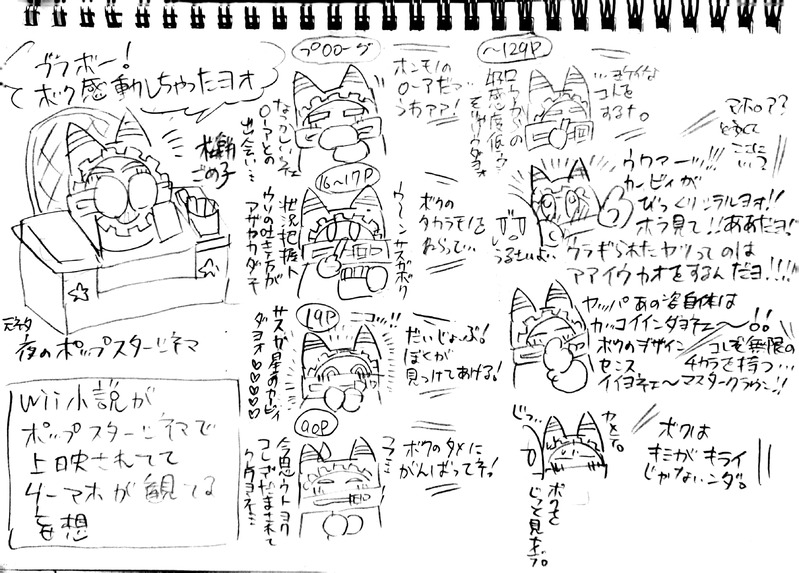 ブラボー!
ボク感動しちゃったヨォ
元ネタ
夜のポップスターシネマ
wii小説が
ポップスターシネマで
上映されてて
マホが観てる
妄想
プロローグ
ホンモノの
ローアだっ
うわァァ!
なつかしいネェ
ローアとの
出会い…
16〜17P
ボクの
タカラモノを
ねらって…
ウ〜ンサスガボク
状況把握ト
ウソの吐き方が
アザヤカダネ
19P
だいじょぶ!
ぼくが
見つけてあげる!
サスガ星のカービィ
ダヨォ♡♡♡♡
20P
ボクのタメに
がんばってネっ!
〜129P
マホロア?
どうして
ここに
いる?
ウワァーッ!!!
カービィが
びっくりシテルヨォ!!
ホラ見て!!ああだヨ!
ウラギられたヤツってのは
アアイウカオをするんだヨ!!!!
うるさいよぃ
ヤッパあの姿自体は
カッコイインダヨネェ〜!!
ボクのデザイン
センス
イイヨネェ〜マスタークラウン!!
コレも無限の
チカラを持つ…
じっ…
ヤメテ。
ボクを
じっと見ないデ。
ボクは
キミがキライ
じゃないンダ。